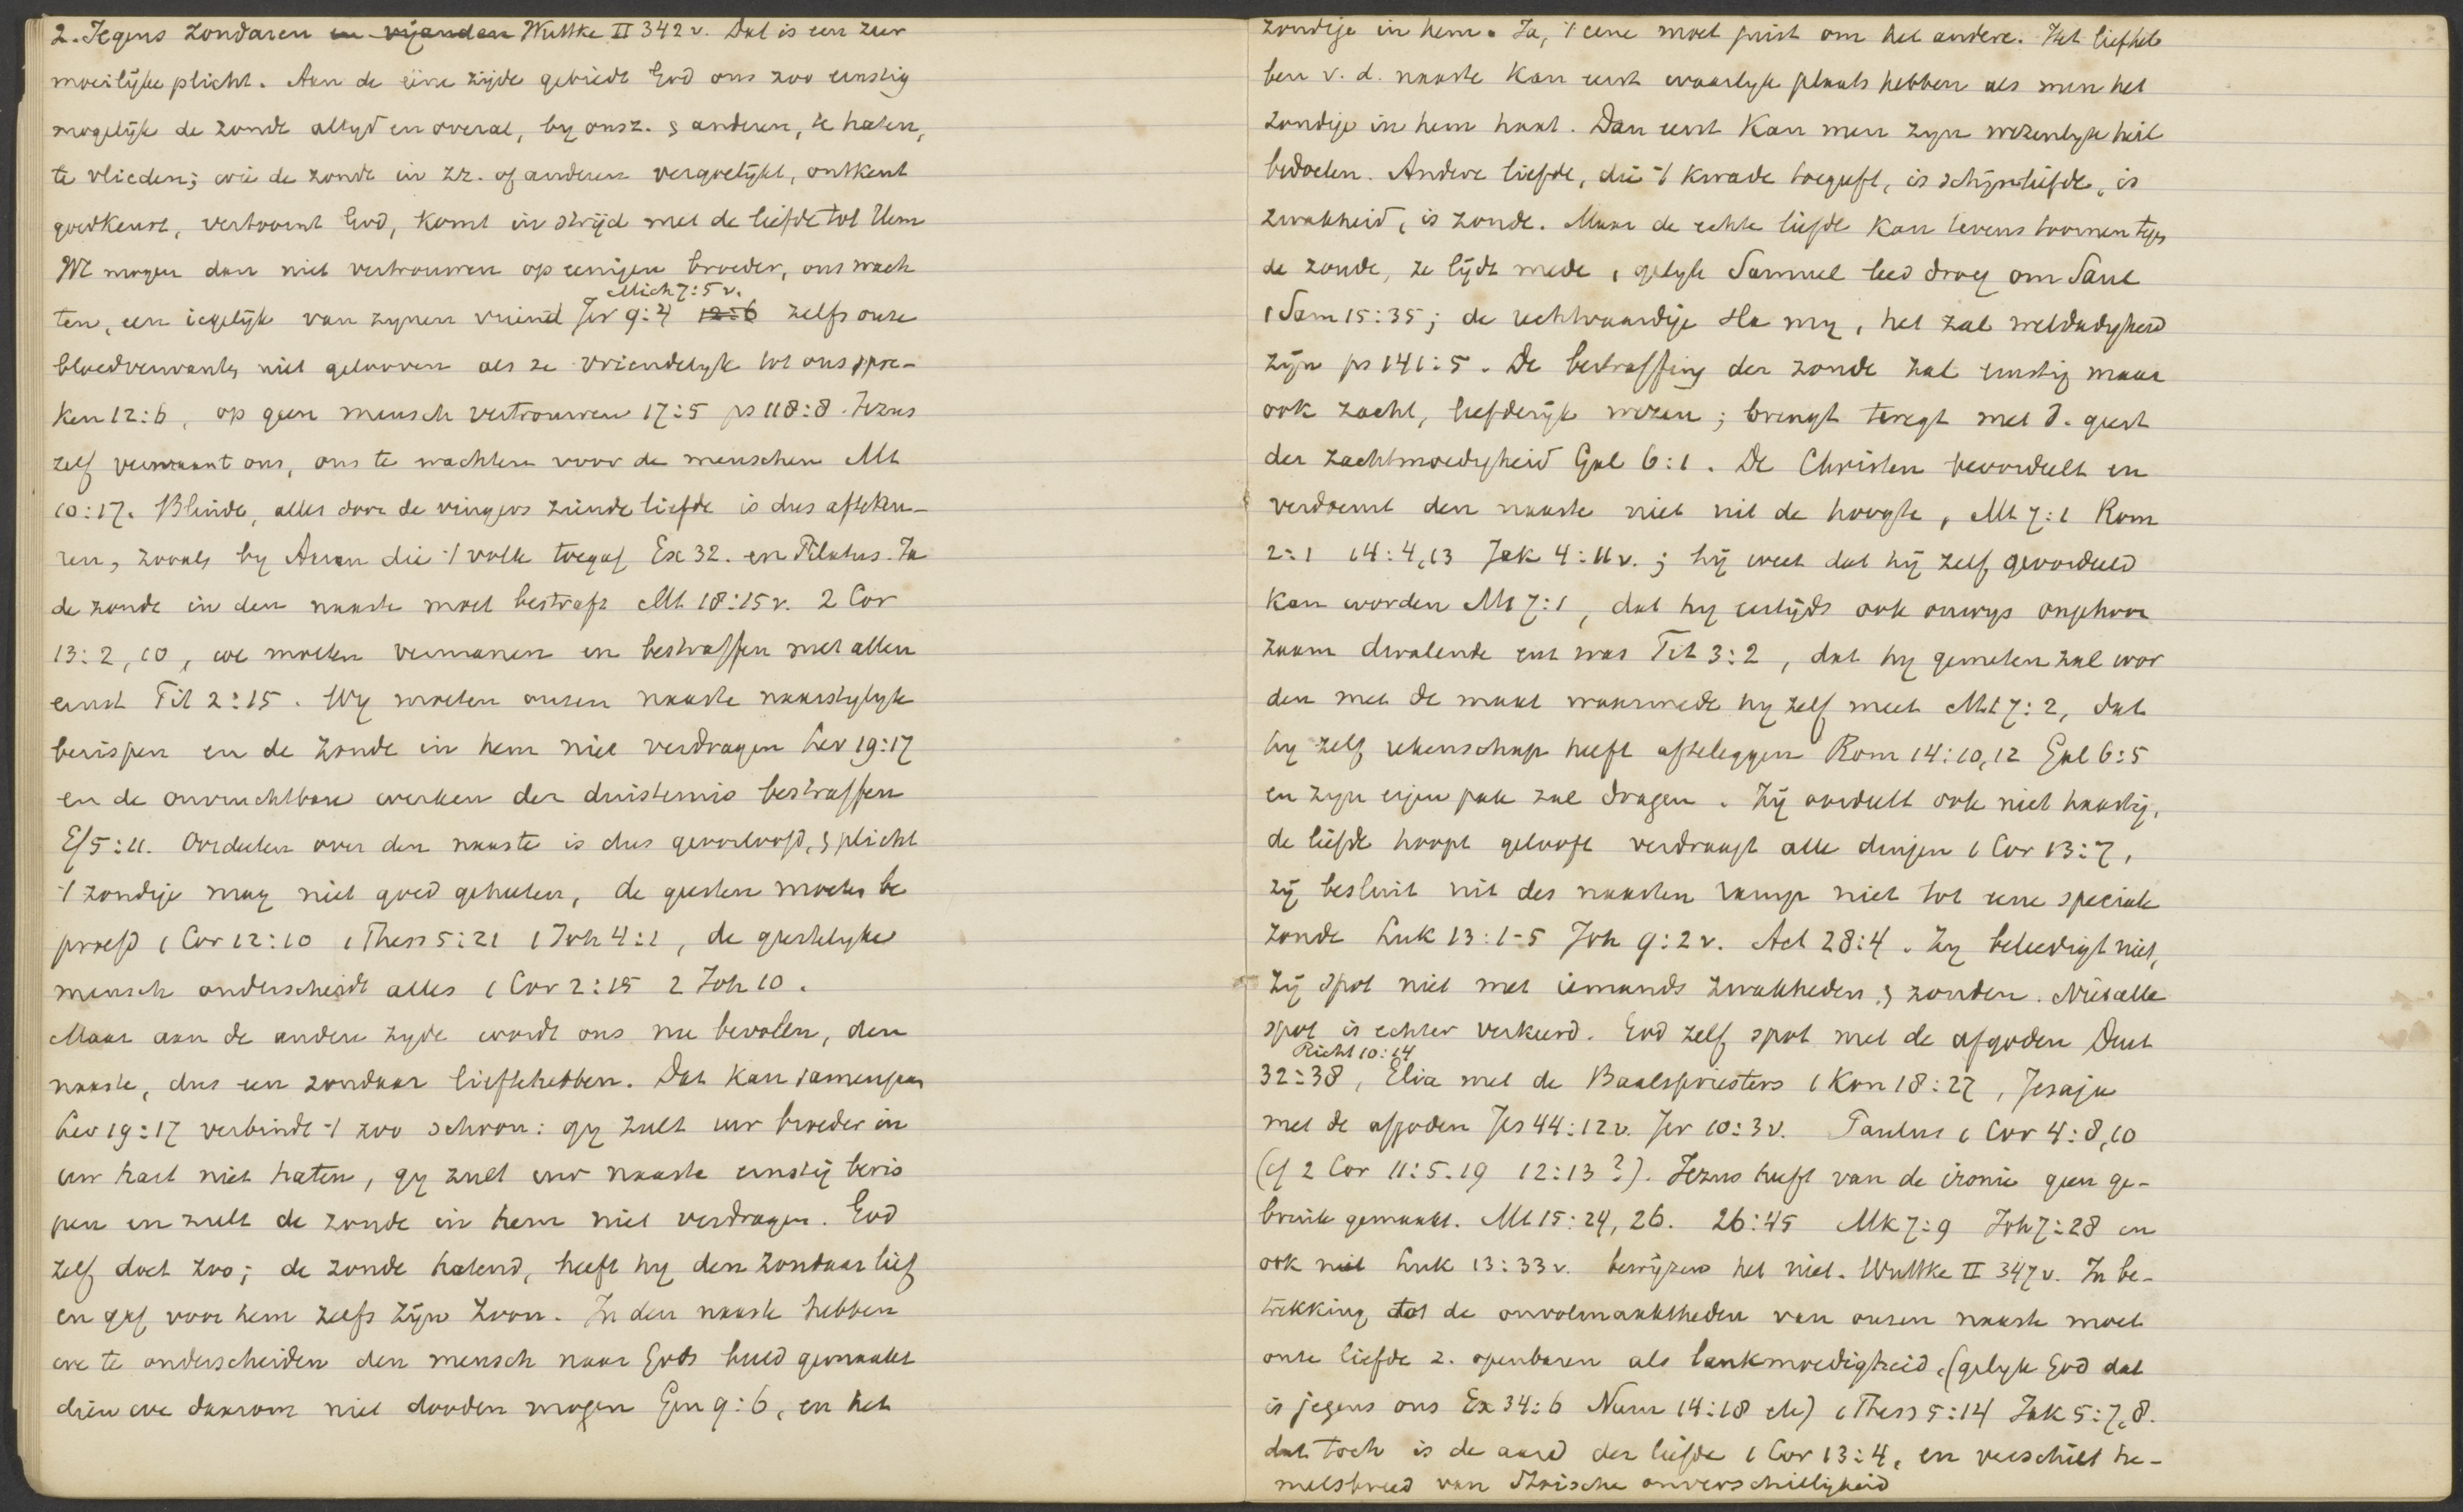 2. Jegens zondaren en vijanden Wuttke II 342 v. Dat is een zeer
moeilijke plicht. Aan de eene zijde gebiedt God ons zoo ernstig
mogelijk de zonde altyd en overal, by onsz. & anderen, te haten,
te vlieden; wie de zonde in zz. of anderen vergoelijkt, ontkent
goedkeurt, vertoornt God, komt in strijd met de liefde tot Hem
We mogen dan niet vertrouwen op eenigen broeder, ons wach
Mich 7:5 v.
ten, een iegelijk van zynen vriend Jer 9:4 12:6 zelfs onze
bloedverwanten niet gelooven als ze vriendelyk tot ons spre-
ken 12:6, op geen mensch vertrouwen 17:5 ps 118:8. Jezus
zelf vermaant ons, ons te wachten voor de menschen Mt
10:17. Blinde, alles door de vingers ziende liefde is dus aftekeu-
ren, zooals by Aaron die 't volk toegaf Ex 32. en Pilatus. Ja
de zonde in den naaste moet bestraft Mt 18:15 v. 2 Cor
13:2, 10, we moeten vermanen en bestraffen met allen
ernst Tit 2:15. Wy moeten onzen naaste naarstiglyk
berispen en de zonde in hem niet verdragen Lev 19:17
en de onvruchtbare werken der duisternis bestraffen
Ef 5:11. Oordeelen over den naaste is dus geoorloofd, & plicht
't zondige mag niet goed geheeten, de geesten moeten be
proefd 1 Cor 12:10 1 Thess 5:21 1 Joh 4:1, de geestelyke
mensch onderscheidt alles 1 Cor 2:15 2 Joh 10.
Maar aan de andere zyde wordt ons nu bevolen, den
naaste, dus een zondaar lieftehebben. Dat kan samengaan
Lev 19:17 verbindt 't zoo schoon: gy zult uw broeder in
uw hart niet haten, gy zult uw naaste ernstig beris
pen en zult de zonde in hem niet verdragen. God
zelf doet zoo; de zonde hatend, heeft hy den zondaar lief
en gaf voor hem zelfs zijn Zoon. In den naaste hebben
we te onderscheiden den mensch naar Gods beeld gemaakt
dien we daarom niet dooden mogen Gen 9:6, en het
zondige in hem. Ja, 't eene moet juist om het andere. Het liefheb
ben v. d. naaste kan eerst waarlyk plaats hebben als men het
zondige in hem haat. Dan eerst kan men zyn wezenlyk heil
bedoelen. Andere liefde, die 't kwade toegeeft, is schijnliefde, is
zwakheid, is zonde. Maar de echte liefde kan tevens toornen tegen
de zonde, ze lijdt mede, gelyk Samuel leed droeg om Saul
1 Sam 15:35; de rechtvaardige sla my, het zal weldadigheid
zijn ps 141:5. De bestraffing der zonde zal ernstig maar
ook zacht, liefderijk wezen; brengt teregt met d. geest
der zachtmoedigheid Gal 6:1. De Christen beoordeelt en
verdoemt den naaste niet uit de hoogte, Mt 7:1 Rom
2:1 14:4,13 Jak 4:11 v.; hij weet dat hij zelf geoordeeld
kan worden Mt 7:1, dat hy eertijds ook onwys ongehoor
zaam dwalende enz was Tit 3:2, dat hy gemeten zal wor
den met de maat waarmede hy zelf meet Mt 7:2, dat
hy zelf rekenschap heeft afteleggen Rom 14:10,12 Gal 6:5
en zyn eigen pak zal dragen. Hij oordeelt ook niet haastig,
de liefde hoopt gelooft verdraagt alle dingen 1 Cor 13:7,
zij besluit uit des naasten ramp niet tot eene speciale
zonde Luk 13:1-5 Joh 9:2 v. Act 28:4. Zy beleedigt niet,
zij spot niet met iemands zwakheden & zonden. Niet alle
spot is echter verkeerd. God zelf spot met de afgoden Deut
Richt 10:14
32:38, Elia met de Baalspriesters 1 Kon 18:27, Jesaja
met de afgoden Jes 44:12 v. Jer 10:3 v. Paulus 1 Cor 4:8,10
(cf 2 Cor 11:5.19 12:13?). Jezus heeft van de ironie geen ge-
bruik gemaakt. Mt 15:24, 26. 26:45 Mk 7:9 Joh 7:28 en
ook niet Luk 13:33 v. bewijzen het niet. Wuttke II 347 v. In be-
trekking tot de onvolmaaktheden van onzen naaste moet
onze liefde z. openbaren als lankmoedigheid, (gelyk God dat
is jegens ons Ex 34:6 Num 14:18 etc) 1 Thess 5:14 Jak 5:7,8.
dat toch is de aard der liefde 1 Cor 13:4, en verschilt he-
melsbreed van Stoische onverschilligheid